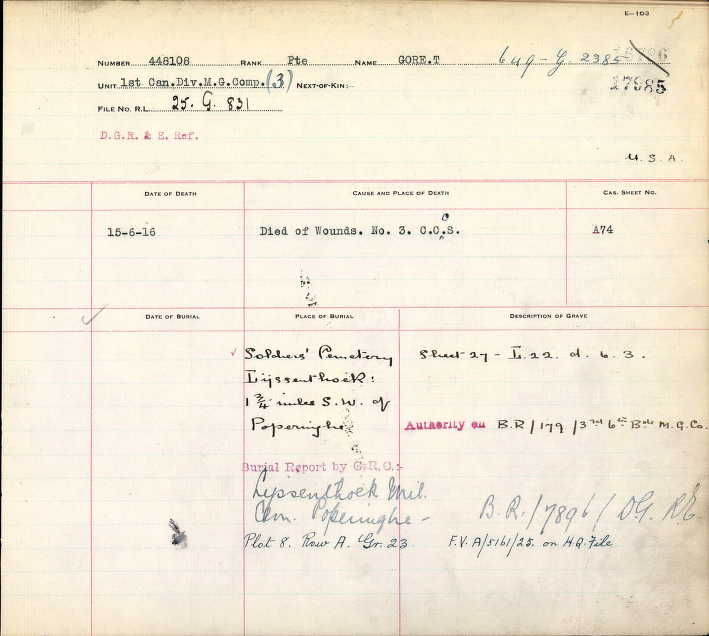 E-103
NUMBER 448108 RANK Pte NAME GORE.T 649-G. 2385
17985
UNIT 1st Can.Div.M.G.Comp. (3) NEXT-OF-KIN:-
FILE NO. R.L. 25. G. 831
D.G.R. & E. Ref.
U.S.A.
DATE OF DEATH CAUSE AND PLACE OF DEATH CAS. SHEET NO.
15-6-16 Died of Wounds. No. 3. C.C.S. A74
DATE OF BURIAL PLACE OF BURIAL DESCRIPTION OF GRAVE
Soldiers' Cemetery Sheet 27 - L.22. d. 6. 3.
Lijssenthoek:
1 3/4 miles S.W. of
Poperinghe Authority on B.R/179/3rd 6th Bde M.G.Co.
Burial Report by G.R.C:-
Lyssenthoek Mil.
Cem. Poperinghe - B.R./7896/ D.G. R.E.
Plot 8. Row A. Gr. 23 F.V. A/5161/25. on H.Q. File